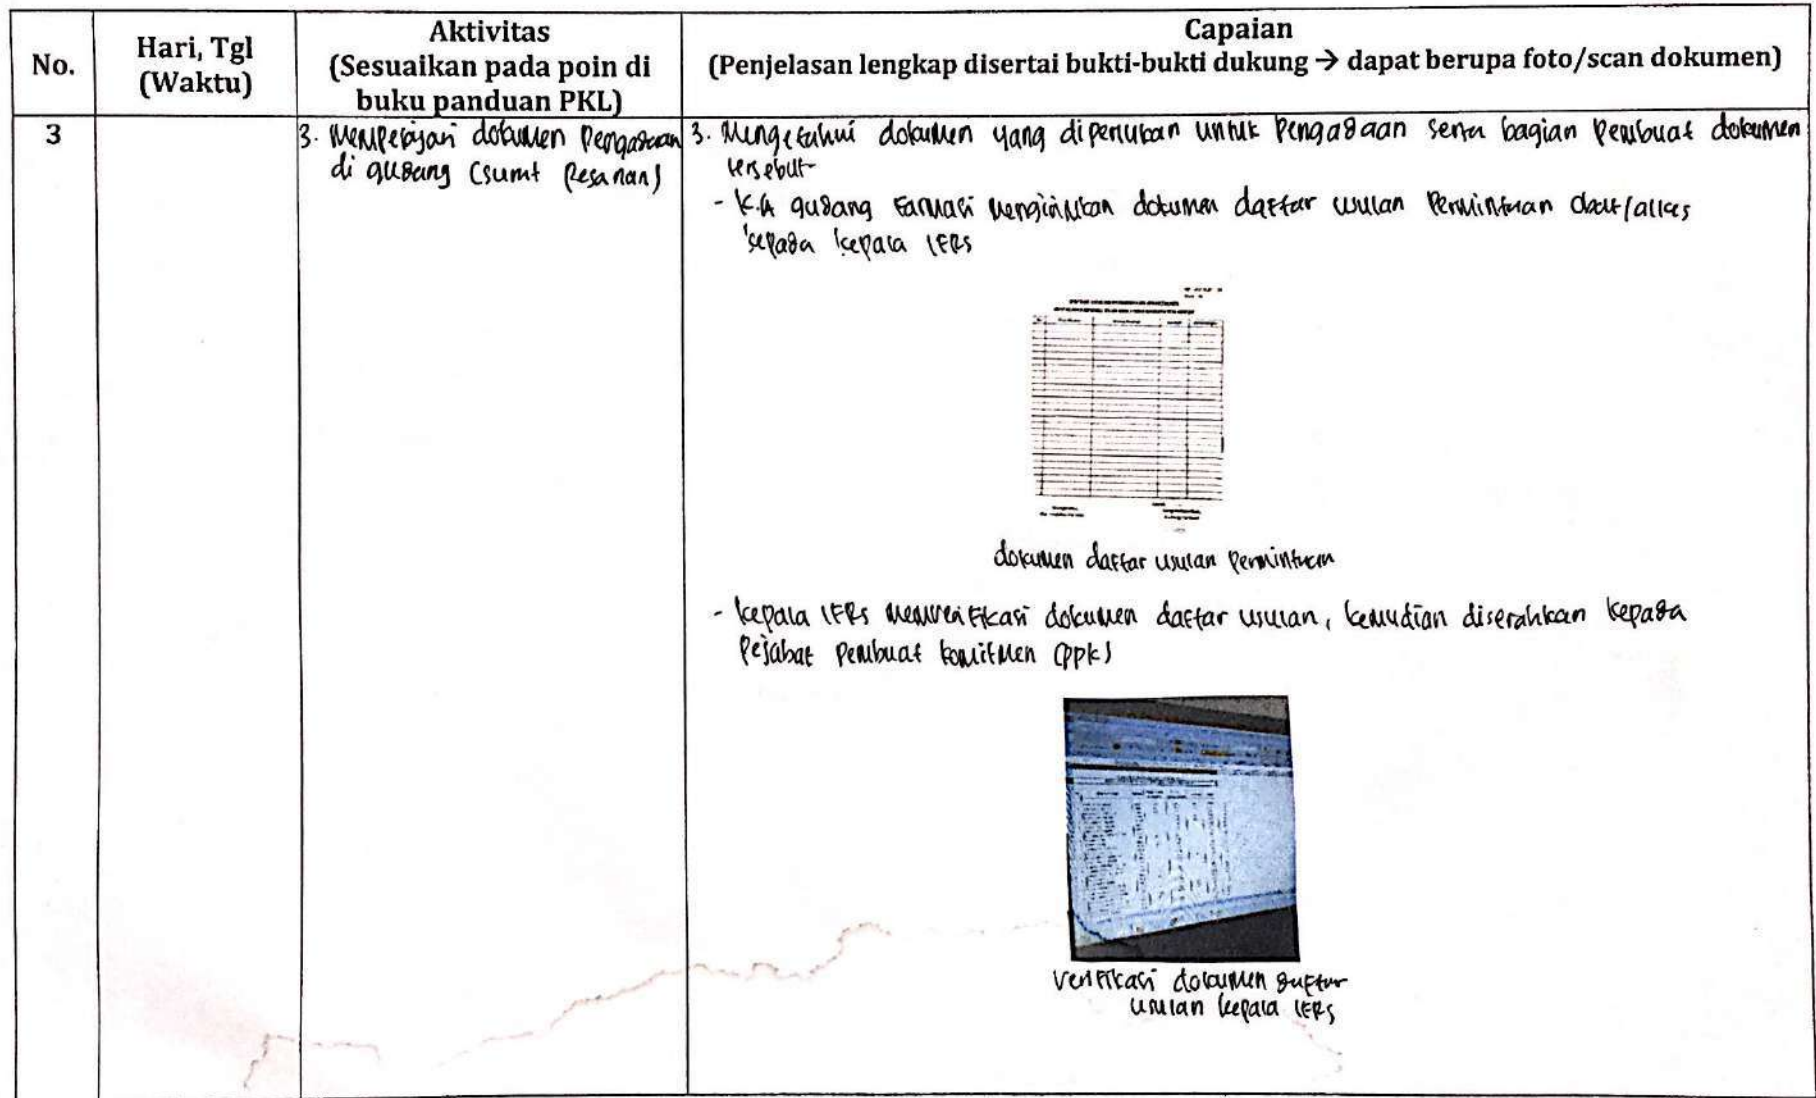 No.
Hari, Tgl
(Waktu)
Aktivitas
(Sesuaikan pada poin di
buku panduan PKL)
Capaian
(Penjelasan lengkap disertai bukti-bukti dukung → dapat berupa foto/scan dokumen)
3
3. Mempelajari dokumen Pengadaan
di gudang (surat Pesanan)
3. Mengetahui dokumen yang diperlukan untuk Pengadaan serta bagian Pembuat dokumen
tersebut
- K.A gudang Farmasi mengirimkan dokumen daftar usulan Permintaan obat/alkes
kepada kepala IFRS
dokumen daftar usulan Permintaan
- kepala IFRS memverifikasi dokumen daftar usulan, kemudian diserahkan kepada
Pejabat Pembuat komitmen (PPK)
Verifikasi dokumen daftar
usulan kepala IFRS